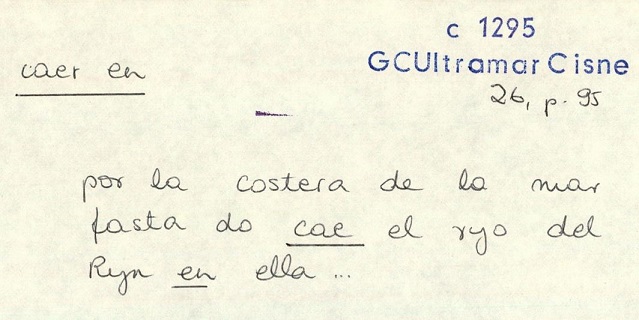 c 1295
caer en
GCUltramar Cisne
26, p. 95
por la costera de la mar
fasta do cae el ryo del
Ryn en ella ...